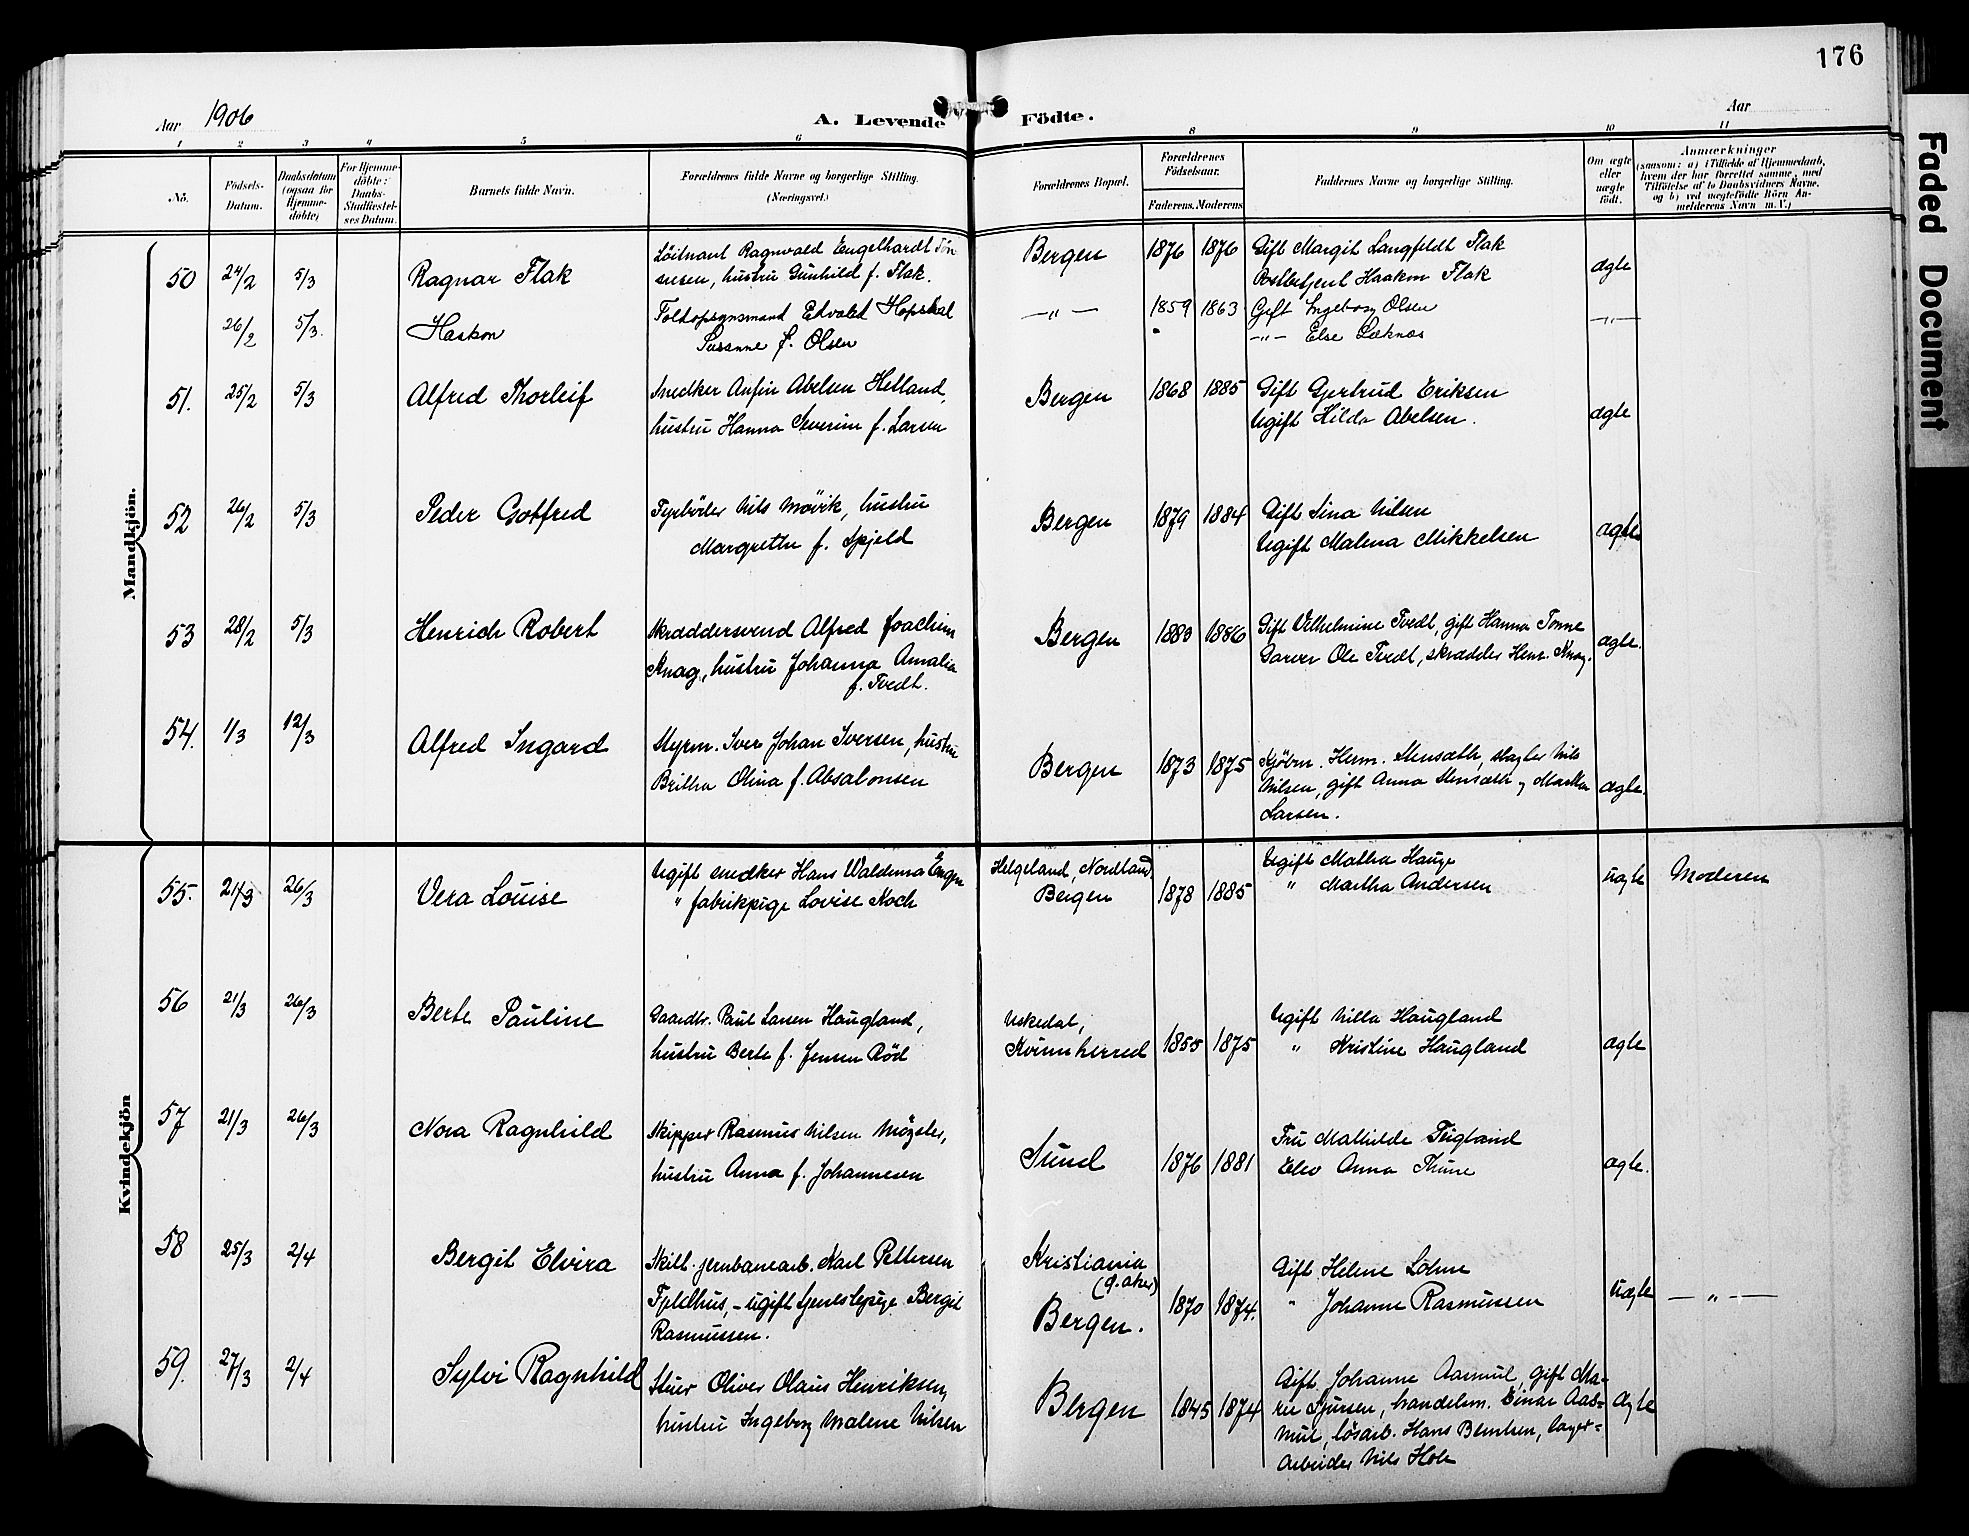 176
Faded Document
Aar 1906
A. Levende Födte.
Aar
1 2 3 4 5 6 8 9 10 11
No.
Födsels-Datum.
Daabsdatum (ogsaa for Hjemme-döbte)
For Hjemme-döbte: Daabs-Stadfæstel-ses Datum.
Barnets fulde Navn.
Forældrenes fulde Navne og borgerlige Stilling. (Næringsvei.)
Forældrenes Bopæl.
Forældrenes Födselsaar.
Faderens. Moderens
Faddernes Navne og borgerlige Stilling.
Om ægte eller uægte födt.
Anmærkninger
(saasom: a) i Tilfælde af Hjemmedaab,
hvem der har forrettet samme, med
Tilföielse af to Daabsvidners Navne,
og b) ved uægtefödte Börn An-
melderens Navn m. V.)
Mandkjön.
50 24/2 5/3 Ragnar Flak
Löitnant Ragnvald Engelhardt Jön
sen, hustru Gunhild f. Flak.
Bergen 1876 1876
Gift Margit Langfeldt Flak
Postbetjent Haakon Flak
ægte
26/2 5/3. Haakon
Toldopsynsmand Edvald Hopsdal
Susanne f. Olsen
—„— 1859 1863
Gift Ingeborg Olsen
—„— Else Læknæs
—„—
51. 25/2 5/3 Alfred Thorleif
Snedker Anfin Abelsen Helland,
hustru Hanna Severine f. Larsen
Bergen 1868 1885
Gift Gjertrud Eriksen
Ugift Hilda Abelsen.
ægte
52 26/2 5/3 Peder Gotfred
Fyrböder Nils Mövik, hustru
Margrethe f. Spjeld
Bergen 1879 1884
Gift Sina Nilsen
Ugift Malena Mikkelsen
ægte
53 28/2 5/3 Henrich Robert
Skræddersvend Alfred Joachim
Knag, hustru Johanna Amalia
f. Tvedt.
Bergen 1880 1886
Gift Vilhelmine Tvedt, gift Hanna Tonne
Garver Ole Tvedt, skrædder Henr. Knag.
ægte.
54. 1/3 12/3 Alfred Ingard
Styrm. Iver Johan Iversen, hustru
Britha Olina f. Absalonsen
Bergen 1873 1875
Kjöbm. Herm. Stensæth, slagter Nils
Nilsen, gift Anna Stensæth og Martha
Larsen.
ægte.
Kvindekjön
55. 21/3 26/3 Vera Louise
Ugift snedker Hans Waldemar Engen
" fabrikpige Lovise Koch
Helgeland, Nordland
Bergen 1878 1885
Ugift Mathea Hauge
" Martha Andersen
uægte Moderen
56 21/3 26/3 Berte Pauline
Gaardbr. Paul Larsen Haugland,
hustru Berte f. Jensen Röd
Uskedal,
Kvinnherred 1855 1875
Ugift Nilla Haugland
" Kristine Haugland
ægte
57 21/3 26/3 Nora Ragnhild
Skipper Rasmus Nilsen Mögster,
hustru Anna f. Johannesen
Sund 1876 1881
Fru Mathilde Teigland
Elev Anna Thune
ægte.
58 25/3 2/4 Bergit Elvira
Skilt. jernbanearb. Karl Pettersen
Fyldhus, - ugift tjenestepige Bergit
Rasmussen.
Kristiania
(g. aker)
Bergen. 1870 1874.
Gift Helene Lohne
" Johanne Rasmussen
Uægte —„—
59. 27/3 2/4 Sylvi Ragnhild
Stuer Oliver Olaus Henriksen,
hustru Ingeborg Malene Nilsen
Bergen 1845 1874
Gift Johanne Aasmul, gift Ma-
rie Sjursen, handelsm. Einar Aas=
mul, lösarb. Hans Berntsen, lager=
arbeider Nils Hole
Ægte